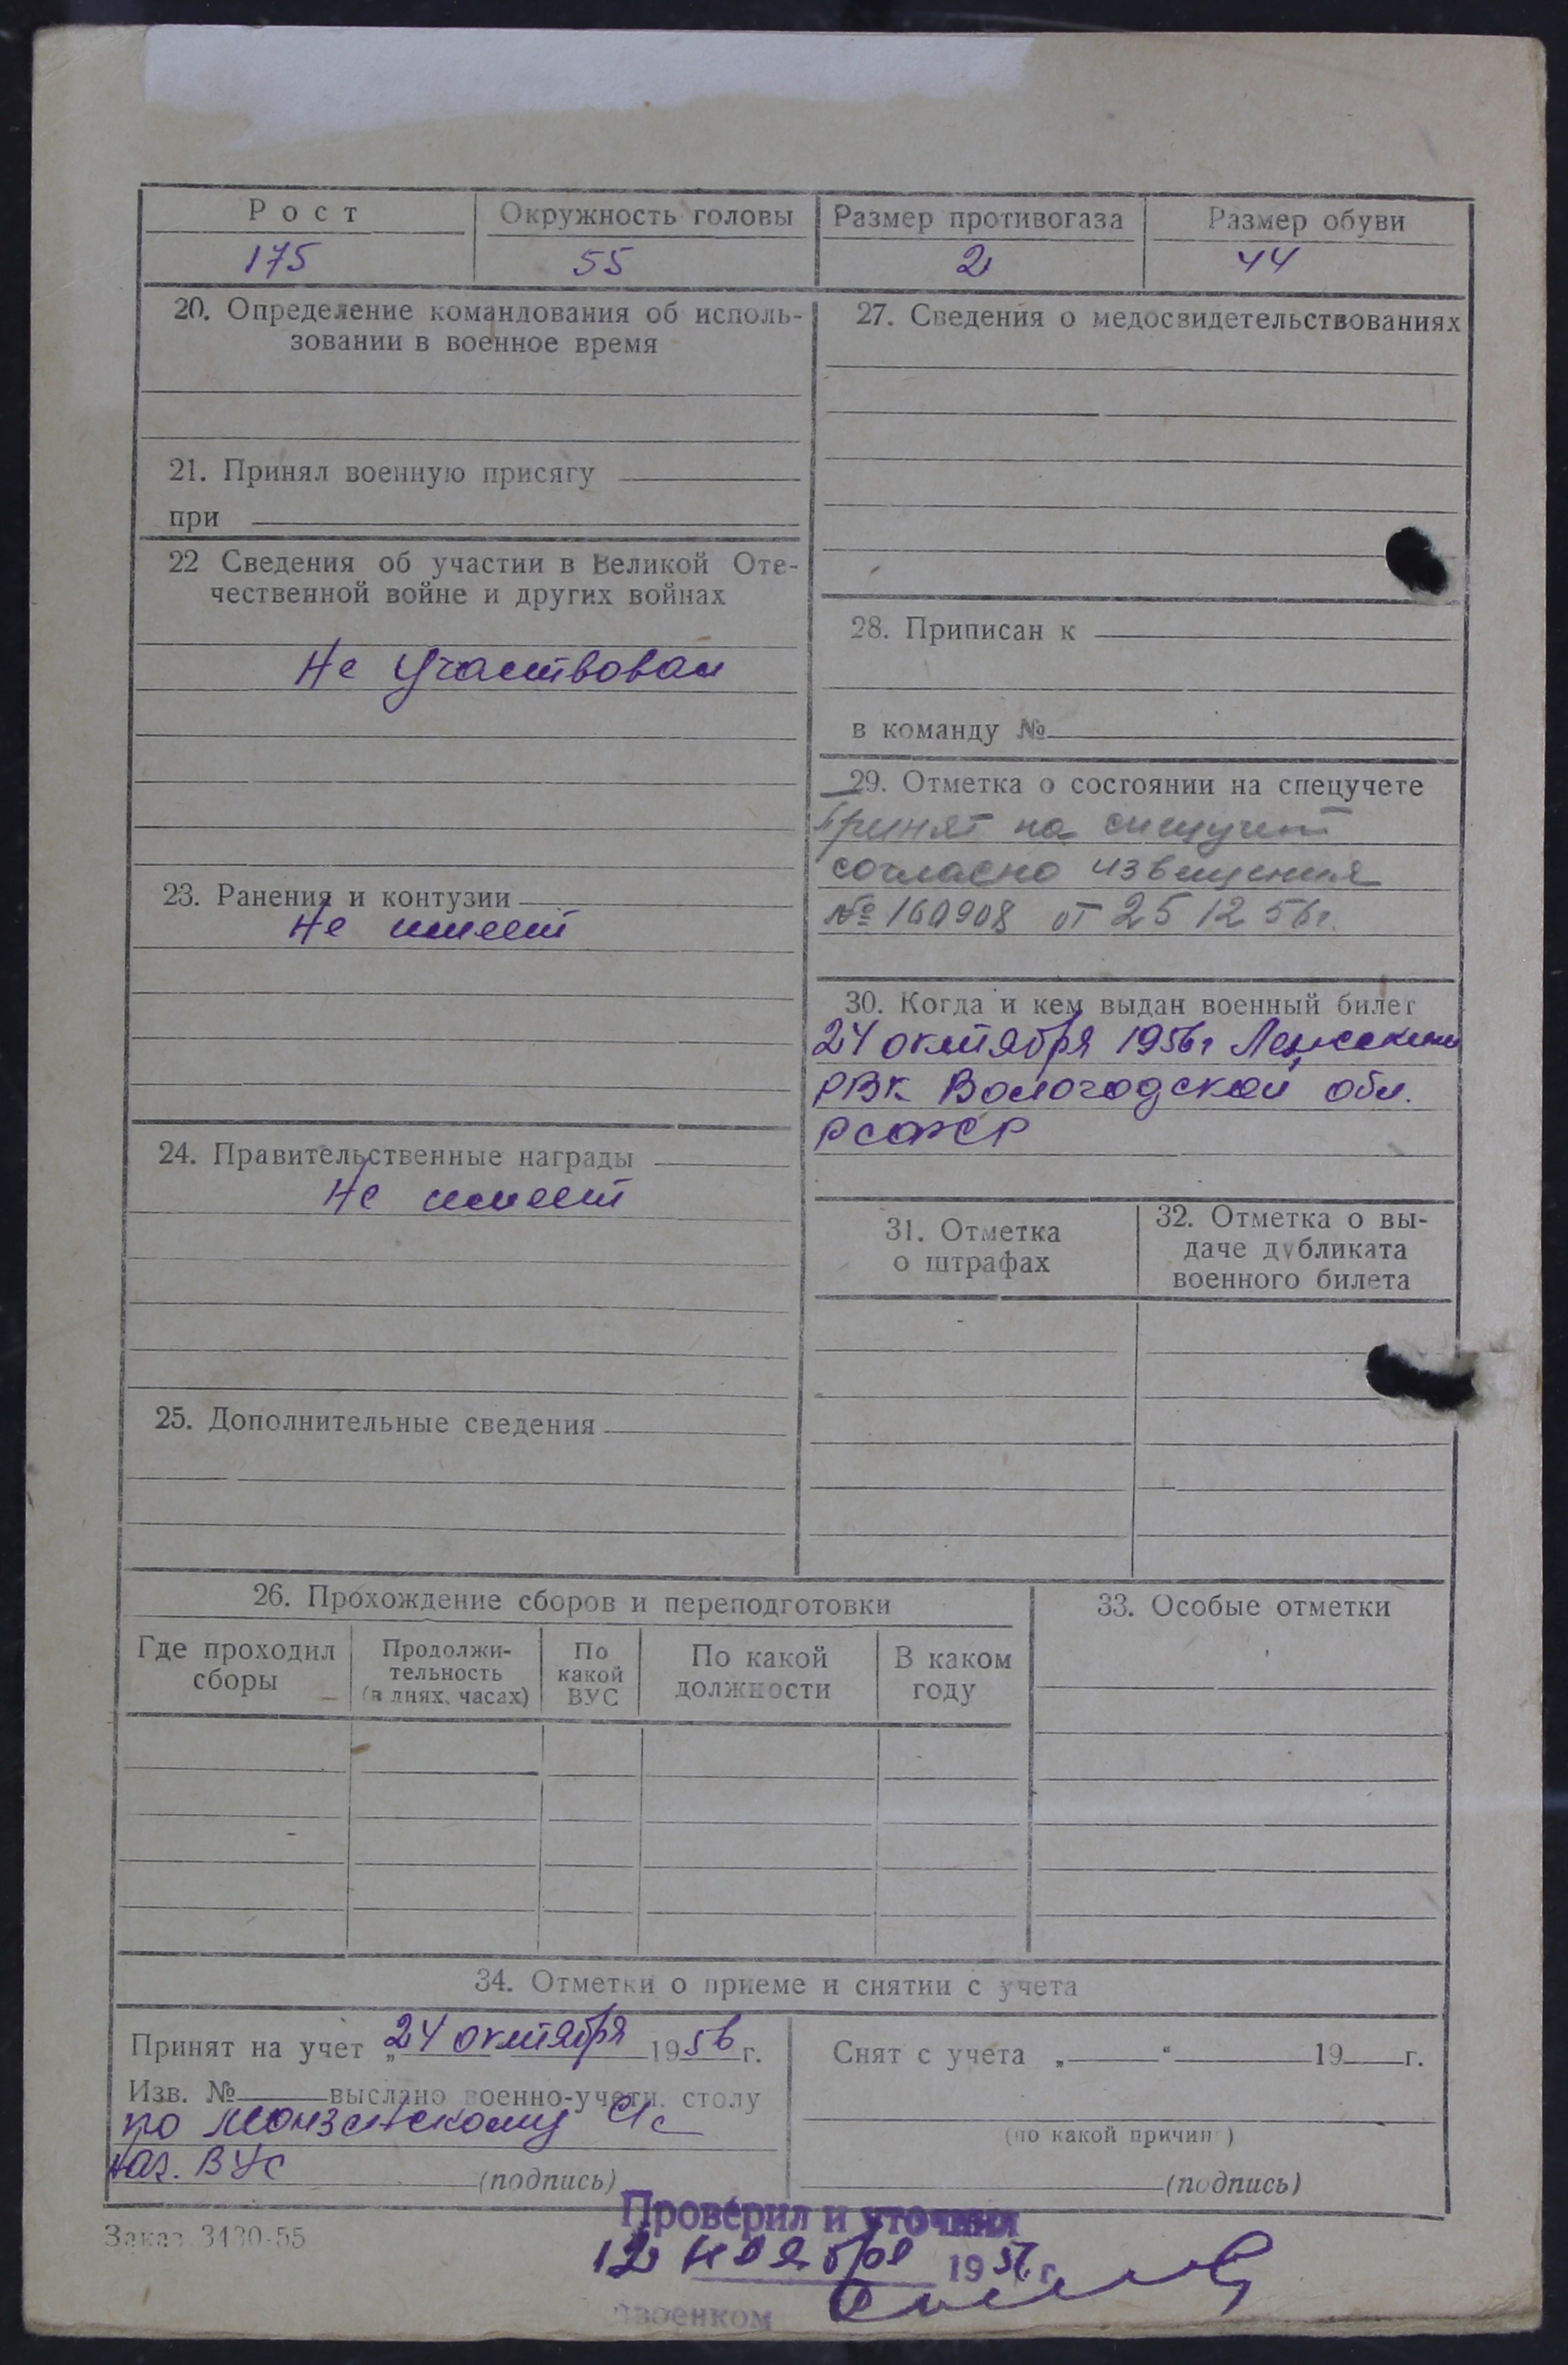 Рост Окружность головы Размер противогаза Размер обуви
175 55 2 44
20. Определение командования об исполь-
зовании в военное время
21. Принял военную присягу
при
22 Сведения об участии в Великой Оте-
чественной войне и других войнах
Не участвовал
23. Ранения и контузии
Не имеет
24. Правительственные награды
Не имеет
25. Дополнительные сведения
27. Сведения о медосвидетельствованиях
28. Приписан к
в команду №
29. Отметка о состоянии на спецучете
Принят на спецучет
согласно извещения
№ 160908 от 25 12 56г.
30. Когда и кем выдан военный билет
24 октября 1956г
РВК Вологодской обл.
РСФСР
31. Отметка
о штрафах
32. Отметка о вы-
даче дубликата
военного билета
26. Прохождение сборов и переподготовки
Где проходил
сборы
Продолжи-
тельность
(в днях, часах)
По
какой
ВУС
По какой
должности
В каком
году
33. Особые отметки
34. Отметки о приеме и снятии с учета
Принят на учет „24 октября 1956г.
Изв. № выслано военно-учетн. столу
по Монзенскому с/с
ВУС
(подпись)
Снят с учета „ “ 19 г.
(по какой причине)
(подпись)
Заказ 3430-55
Проверил и уточнил
12 ноября 1957 г.
военком